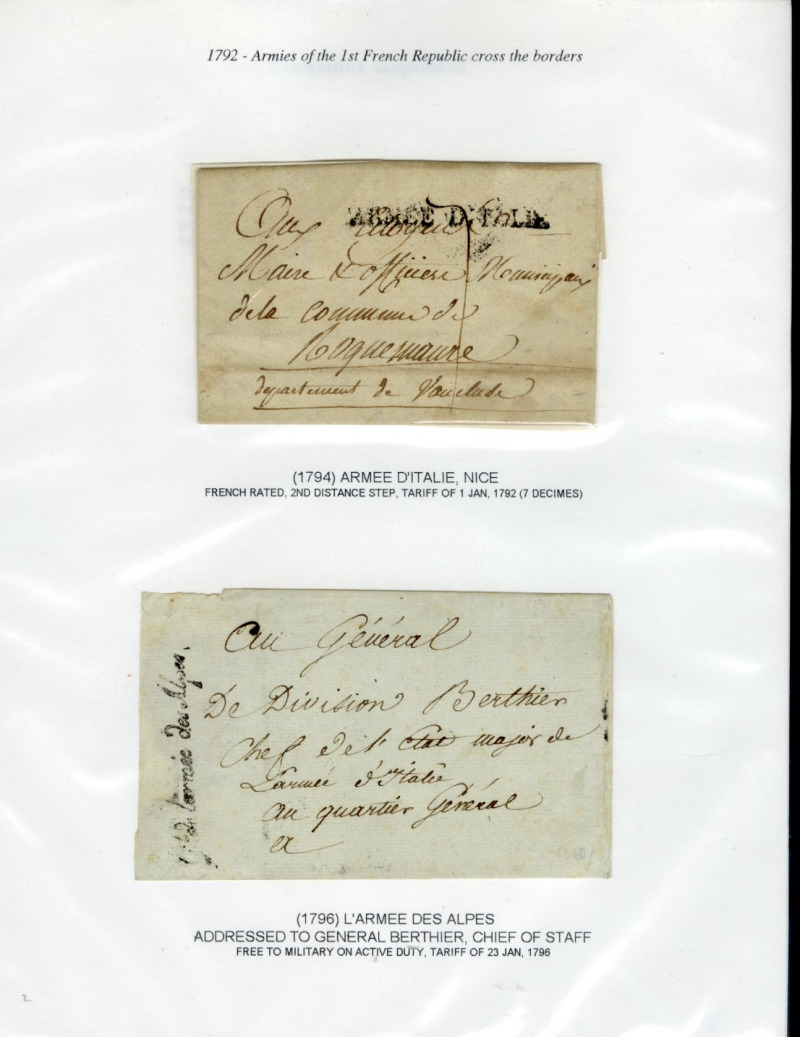 1792 - Armies of the 1st French Republic cross the borders
ARMÉE D'ITALIE
Aux Citoyens
Maire & officiers Municipaux
de la commune de
Roquemaure
departement de Vaucluse
(1794) ARMEE D'ITALIE, NICE
FRENCH RATED, 2ND DISTANCE STEP, TARIFF OF 1 JAN, 1792 (7 DECIMES)
Au Général
De Division Berthier
Chef de l'état major de
L'armée d'Italie
au quartier Général
a
de l'armée des Alpes.
(1796) L'ARMEE DES ALPES
ADDRESSED TO GENERAL BERTHIER, CHIEF OF STAFF
FREE TO MILITARY ON ACTIVE DUTY, TARIFF OF 23 JAN, 1796
2